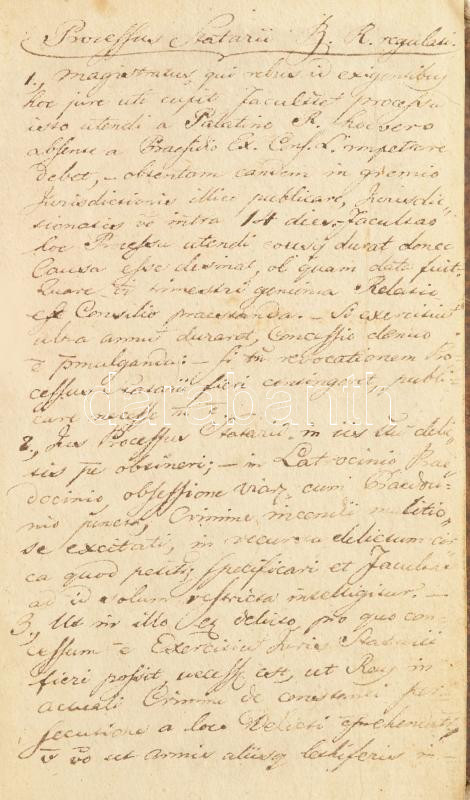 Processus Statarii R. R. regulati.
1., Magistratus, qui rebus id exigentibus
hoc jure uti cupit Facultatem processu
isto utendi a Palatino R. hoc vero
absente a Praesidio Ex. Cons. L. impetrare
debet, – obtentam eandem in gremio
Jurisdictionis illico publicare, Jurisdic-
tionatis vo intra 14 dies. Facultas
hoc Processu utendi eousq durat donec
Causa esse desinat, ob quam data fuit.
Quare trimestri genuina Relatio
est Consilio praestanda. – Si exercitium
ultra annum duraret, Concessio denuo
e pmulganda: – si tn revocationem Pro
cessus Statarii fieri contingeret, publi-
care necesse
2., Jus Processus Statarii in iis delic-
tis obtineri; – in Latrocinio Prae
docinio obsessione viar, cum Praedoci-
nio junctae, Crimine incendii malitio-
se excitati, in recursu delictum cir-
ca quod petitq specificari et Facultas
ad id solum restricta intelligitur. –
3., Ut in illo delicto, pro quo con-
cessum e Exercitium Juris Statarii
fieri possit, necesse est, ut Reus in
actuali Crimine de constanti per
secutione a loco Delicti aprehendatur
vo ut armis aliisq lethiferis in-
darabanth